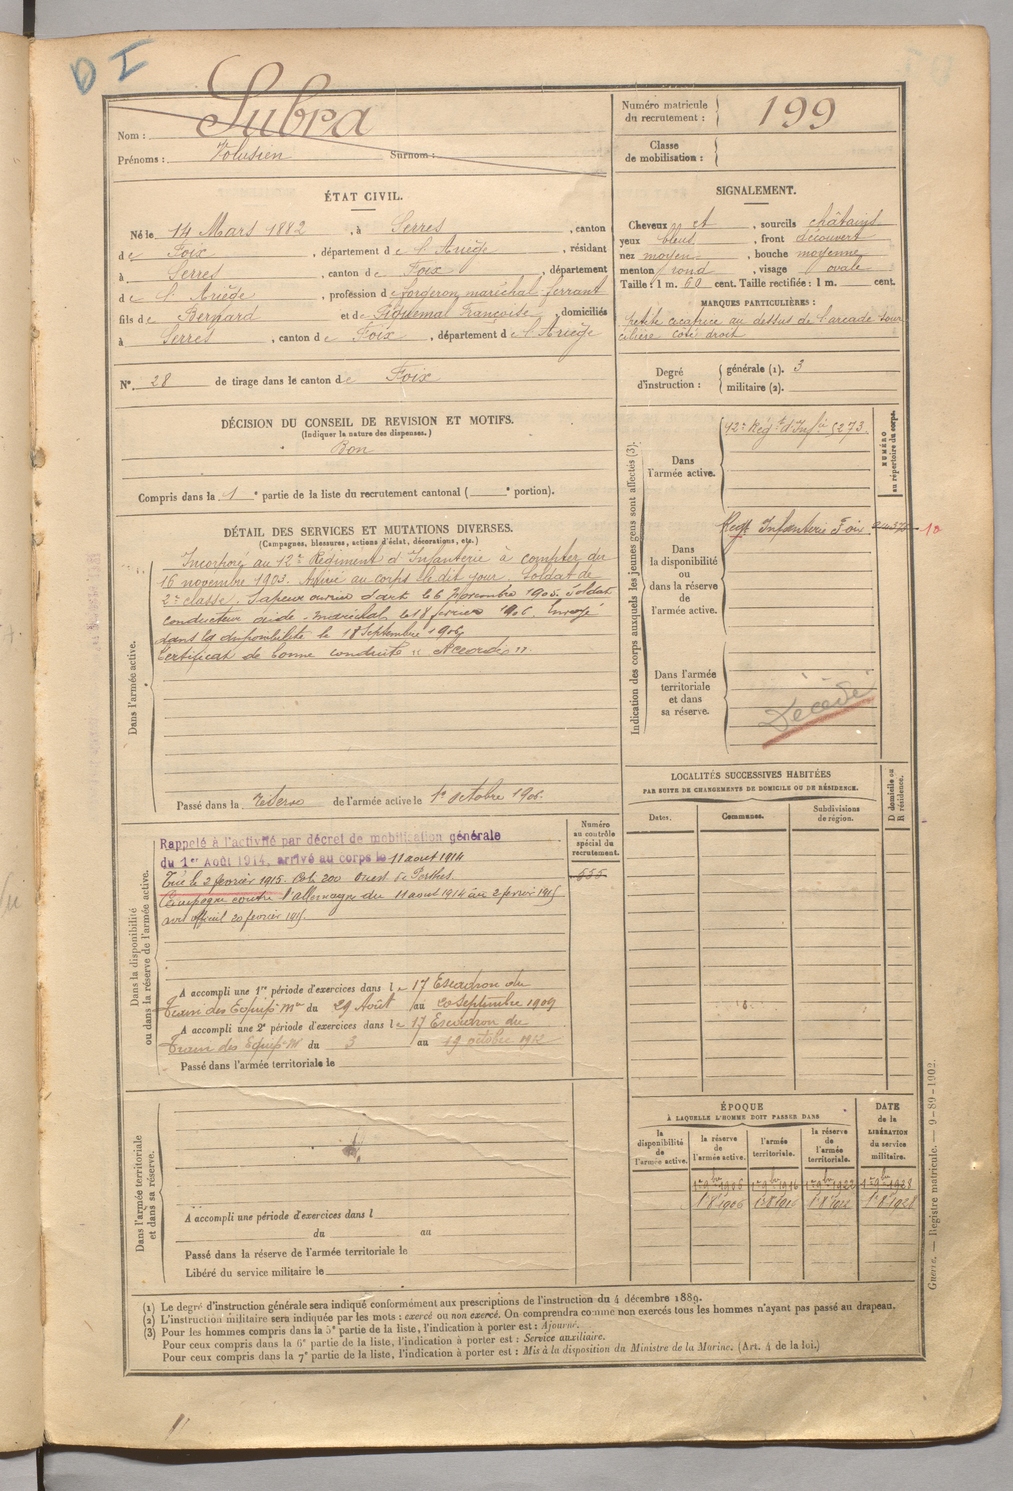 D I
Nom : Subra
Prénoms : Volusien Surnom :
Numéro matricule du recrutement : 199
Classe de mobilisation :
ÉTAT CIVIL.
Né le 14 Mars 1882, à Serres, canton
de Foix, département de l'Ariège, résidant
à Serres, canton de Foix, département
de l'Ariège, profession de forgeron, maréchal ferrant
fils de Bernard et de Piquemal Françoise, domiciliés
à Serres, canton de Foix, département de l'Ariège
N° 28 de tirage dans le canton de Foix
SIGNALEMENT.
Cheveux et, sourcils châtains
yeux bleus, front découvert
nez moyen, bouche moyenne
menton rond, visage ovale
Taille : 1 m. 60 cent. Taille rectifiée : 1 m. cent.
MARQUES PARTICULIÈRES :
Petite cicatrice au dessus de l'arcade sour
cilière côté droit
Degré d'instruction : générale (1). 3
militaire (2).
DÉCISION DU CONSEIL DE REVISION ET MOTIFS.
(Indiquer la nature des dispenses.)
Bon
Compris dans la 1e partie de la liste du recrutement cantonal ( e portion).
DÉTAIL DES SERVICES ET MUTATIONS DIVERSES.
(Campagnes, blessures, actions d'éclat, décorations, etc.)
Dans l'armée active.
Incorporé au 12e Régiment d'Infanterie à compter du
16 novembre 1903. Arrivé au corps le dit jour. Soldat de
2e classe. Sapeur ouvrier d'art le 6 Novembre 1905. Soldat
conducteur aide-maréchal le 18 février 1906. Envoyé
dans la disponibilité le 18 Septembre 1906
Certificat de bonne conduite "Accordé".
Passé dans la réserve de l'armée active le 1er octobre 1906.
Indication des corps auxquels les jeunes gens sont affectés (3).
NUMÉRO au répertoire du corps.
Dans l'armée active.
12e Régt d'Infie 5273
Dans la disponibilité ou dans la réserve de l'armée active.
Régt Infanterie Foix
Dans l'armée territoriale et dans sa réserve.
Décédé
LOCALITÉS SUCCESSIVES HABITÉES
PAR SUITE DE CHANGEMENTS DE DOMICILE OU DE RÉSIDENCE.
Dates. Communes. Subdivisions de région. D domicile ou R résidence.
Dans la disponibilité ou dans la réserve de l'armée active.
Numéro au contrôle spécial du recrutement.
655
Rappelé à l'activité par décret de mobilisation générale
du 1er Août 1914, arrivé au corps le 11 aout 1914
Tué le 2 février 1915. Cote 200 Ouest de Perthes.
Campagne contre l'allemagne du 11 aout 1914 au 2 février 1915
avis officiel 20 février 1915
A accompli une 1re période d'exercices dans le 17 Escadron du
Train des Equip. Mre du 29 Août au 20 septembre 1909
A accompli une 2e période d'exercices dans le 17 Escadron du
Train des Equip. M du 3 au 19 octobre 1912
Passé dans l'armée territoriale le
Dans l'armée territoriale et dans sa réserve.
A accompli une période d'exercices dans l
du au
Passé dans la réserve de l'armée territoriale le
Libéré du service militaire le
ÉPOQUE
À LAQUELLE L'HOMME DOIT PASSER DANS
DATE de la LIBÉRATION du service militaire.
la disponibilité de l'armée active. la réserve de l'armée active. l'armée territoriale. la réserve de l'armée territoriale.
(1) Le degré d'instruction générale sera indiqué conformément aux prescriptions de l'instruction du 4 décembre 1889.
(2) L'instruction militaire sera indiquée par les mots : exercé ou non exercé. On comprendra comme non exercés tous les hommes n'ayant pas passé au drapeau.
(3) Pour les hommes compris dans la 5e partie de la liste, l'indication à porter est : Ajourné.
Pour ceux compris dans la 6e partie de la liste, l'indication à porter est : Service auxiliaire.
Pour ceux compris dans la 7e partie de la liste, l'indication à porter est : Mis à la disposition du Ministre de la Marine. (Art. 4 de la loi.)
Guerre. — Registre matricule. — 9-89-1902.